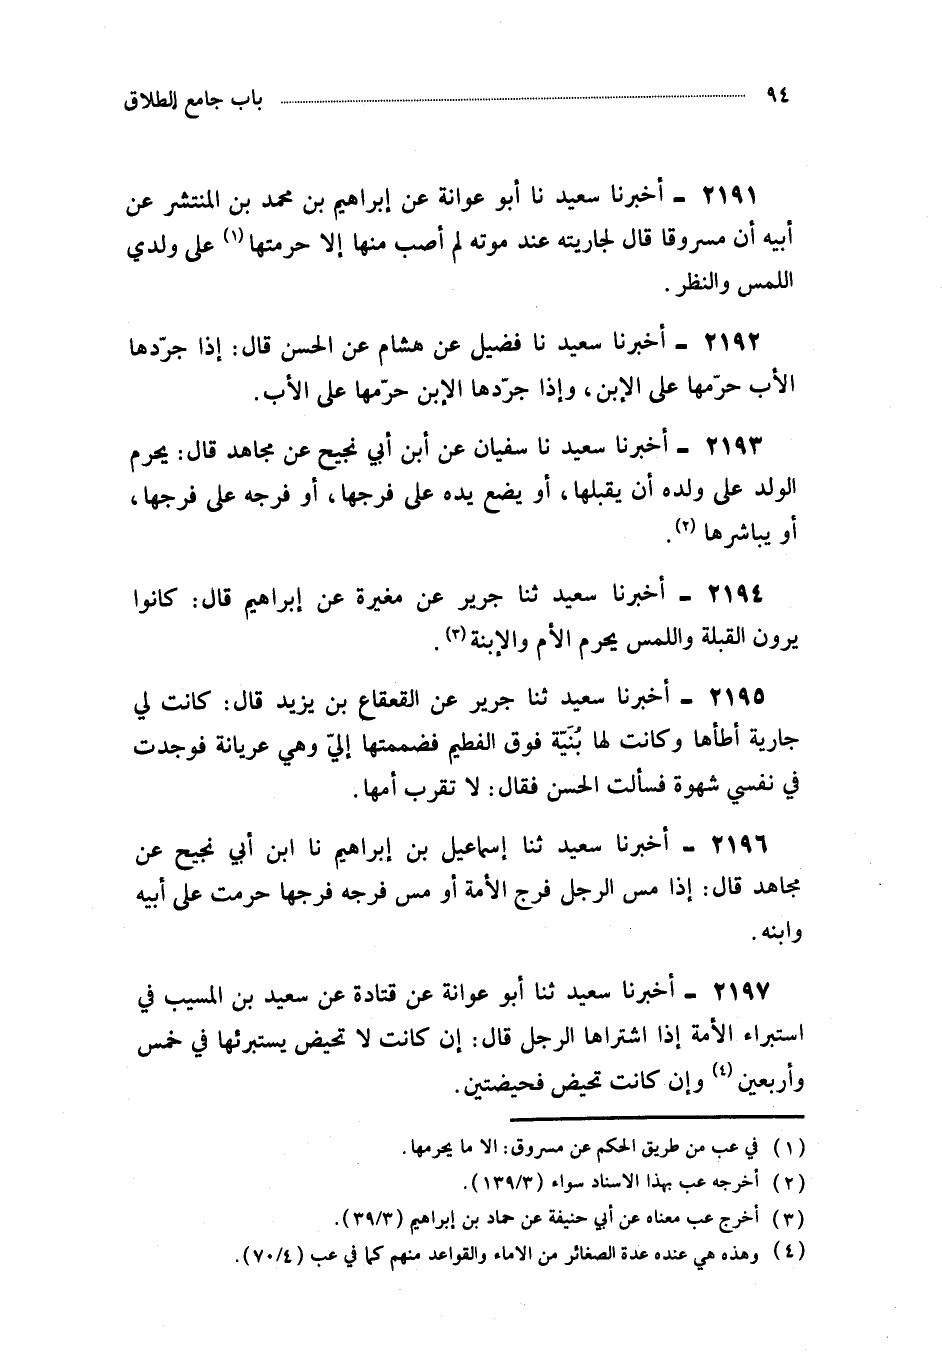 ٩٤ باب جامع الطلاق
٢١٩١ ـ أخبرنا سعيد نا أبو عوانة عن إبراهيم بن محمد بن المنتشر عن
أبيه أن مسروقا قال لجاريته عند موته لم أصب منها إلا حرمتها (١) على ولدي
اللمس والنظر .
٢١٩٢ ـ أخبرنا سعيد نا فضيل عن هشام عن الحسن قال: إذا جرّدها
الأب حرّمها على الإبن، وإذا جرّدها الإبن حرّمها على الأب.
٢١٩٣ ـ أخبرنا سعيد نا سفيان عن أبن أبي نجيح عن مجاهد قال: يحرم
الولد على ولده أن يقبلها، أو يضع يده على فرجها، أو فرجه على فرجها،
أو يباشرها (٢).
٢١٩٤ ـ أخبرنا سعيد ثنا جرير عن مغيرة عن إبراهيم قال: كانوا
يرون القبلة واللمس يحرم الأم والإبنة (٣).
٢١٩٥ ـ أخبرنا سعيد ثنا جرير عن القعقاع بن يزيد قال: كانت لي
جارية أطأها وكانت لها بُنَيّة فوق الفطيم فضممتها إليّ وهي عريانة فوجدت
في نفسي شهوة فسألت الحسن فقال: لا تقرب أمها.
٢١٩٦ ـ أخبرنا سعيد ثنا إسماعيل بن إبراهيم نا ابن أبي نجيح عن
مجاهد قال: إذا مس الرجل فرج الأمة أو مس فرجه فرجها حرمت على أبيه
وابنه .
٢١٩٧ ـ أخبرنا سعيد ثنا أبو عوانة عن قتادة عن سعيد بن المسيب في
استبراء الأمة إذا اشتراها الرجل قال: إن كانت لا تحيض يستبرئها في خمس
وأربعين (٤) وإن كانت تحيض فحيضتين.
(١) في عب من طريق الحكم عن مسروق: الا ما يحرمها.
(٢) أخرجه عب بهذا الاسناد سواء (١٣٩/٣).
(٣) أخرج عب معناه عن أبي حنيفة عن حماد بن إبراهيم (٣٩/٣).
(٤) وهذه هي عنده عدة الصغائر من الاماء والقواعد منهم كما في عب (٧٠/٤).